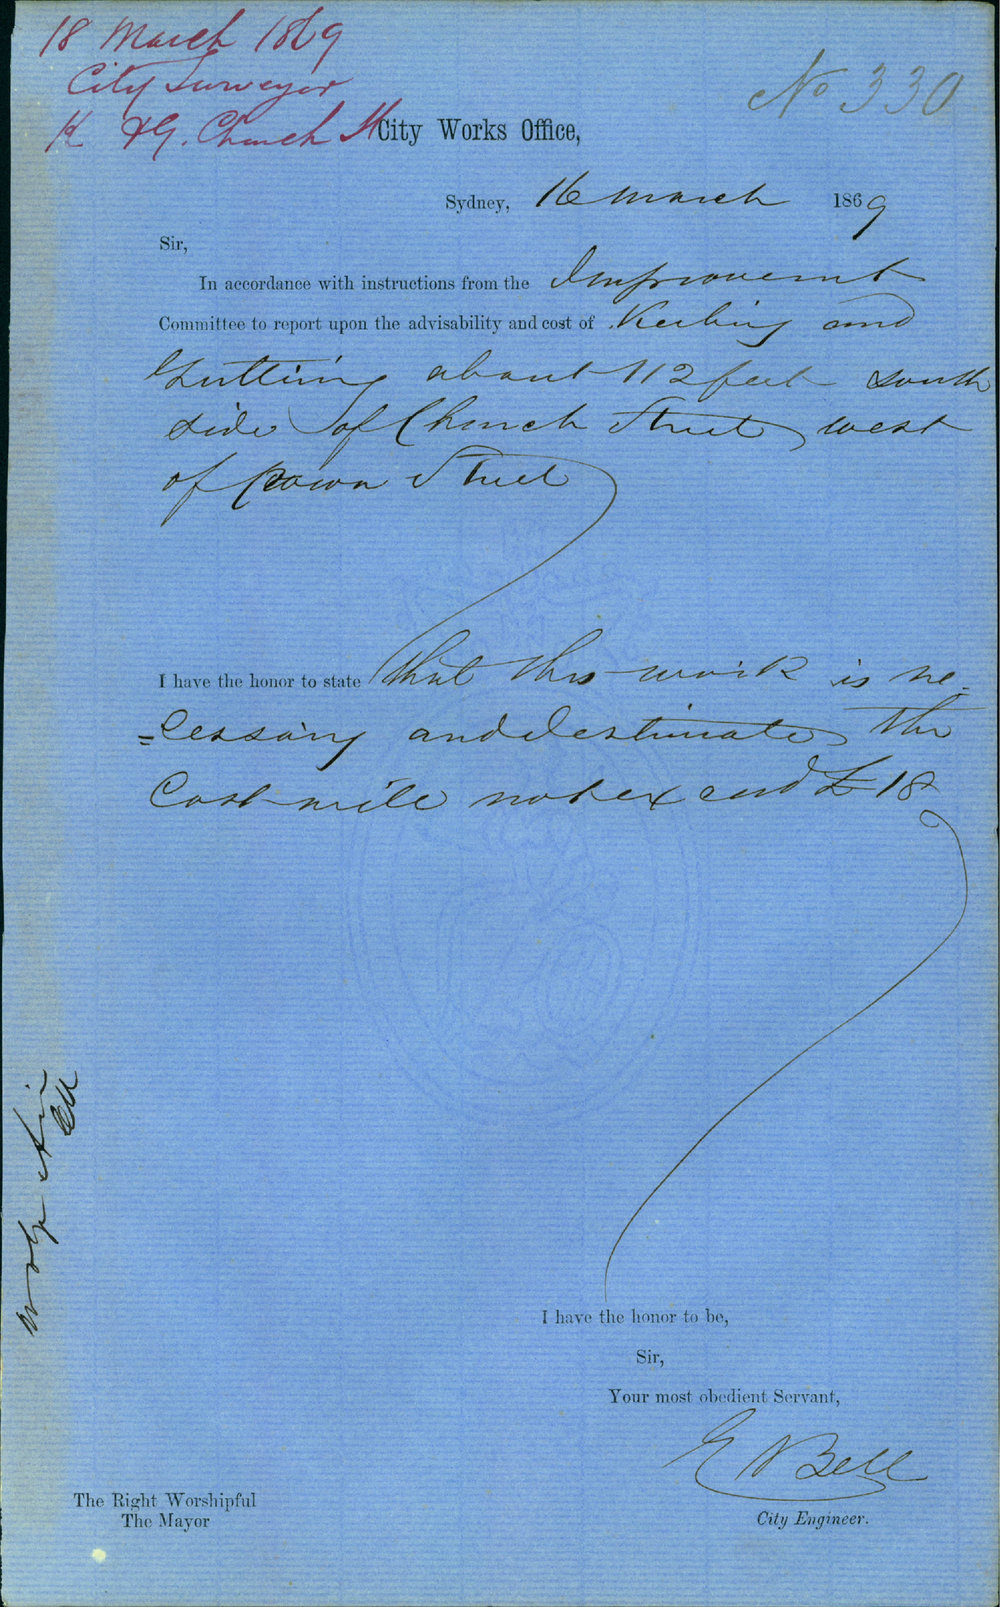 18 March 1869
City Surveyor
K & G. Church St
No 330
City Works Office,
Sydney, 16 March 1869
Sir,
In accordance with instructions from the Improvement
Committee to report upon the advisability and cost of Kerbing and
Guttering about 112 feet south
side of Church Street west
of Crown Street
I have the honor to state that this work is ne-
=cessary and I estimate the
Cost will not exceed £18
I have the honor to be,
Sir,
Your most obedient Servant,
E Bell
City Engineer.
The Right Worshipful
The Mayor